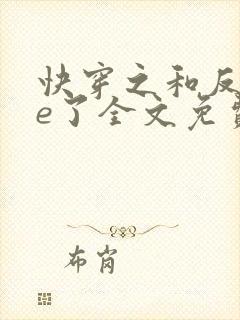 快穿之和反
e了全文免费
布肖